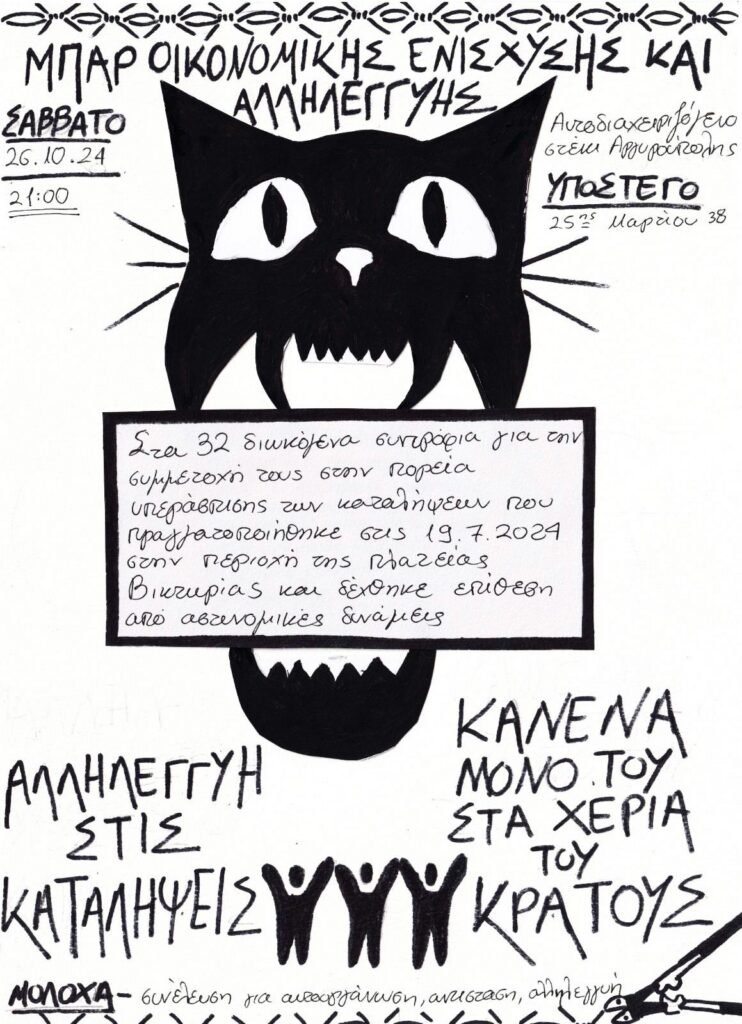 ΜΠΑΡ ΟΙΚΟΝΟΜΙΚΗΣ ΕΝΙΣΧΥΣΗΣ ΚΑΙ
ΑΛΛΗΛΕΓΓΥΗΣ
ΣΑΒΒΑΤΟ
26.10.24
21:00
Αυτοδιαχειριζόμενο
στέκι Αργυρούπολης
ΥΠΟΣΤΕΓΟ
25ης Μαρτίου 38
Στα 32 διωκόμενα συντρόφια για την
συμμετοχή τους στην πορεία
υπεράσπισης των καταλήψεων που
πραγματοποιήθηκε στις 19.7.2024
στην περιοχή της πλατείας
Βικτωρίας και δέχθηκε επίθεση
από αστυνομικές δυνάμεις
ΑΛΛΗΛΕΓΓΥΗ
ΣΤΙΣ
ΚΑΤΑΛΗΨΕΙΣ
ΚΑΝΕΝΑ
ΜΟΝΟ ΤΟΥ
ΣΤΑ ΧΕΡΙΑ
ΤΟΥ
ΚΡΑΤΟΥΣ
ΜΟΛΟΧΑ - συνέλευση για αυτοοργάνωση, αντίσταση, αλληλεγγύη